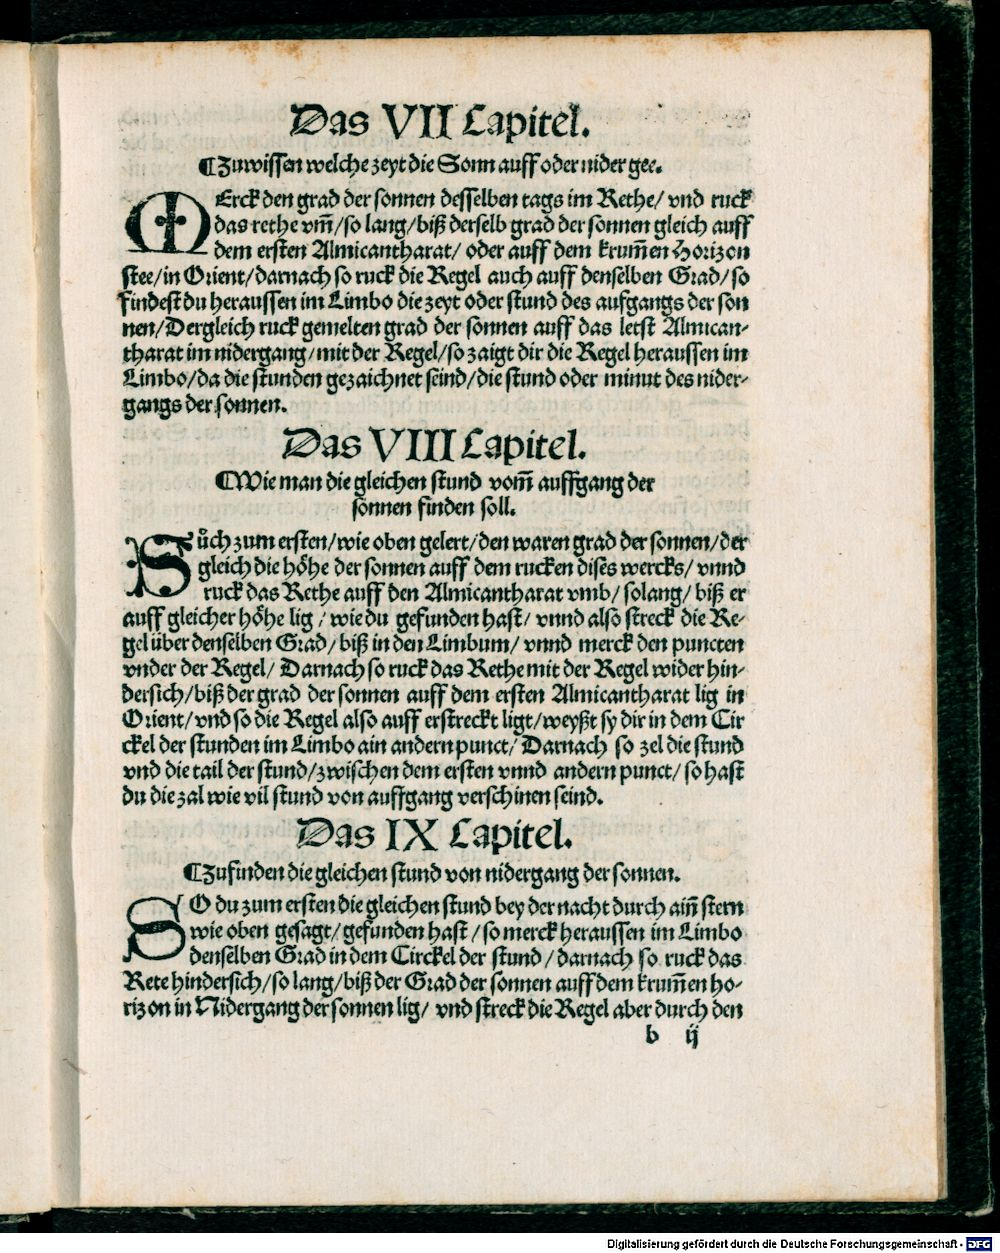 Das VII Capitel.
¶Zuwissen welche zeyt die Sonn auff oder nider gee.
MErck den grad der sonnen desselben tags im Rethe/ vnd ruck
das rethe vm̃/so lang/biß derselb grad der sonnen gleich auff
dem ersten Almicantharat/ oder auff dem krum̃en Horizon
stee/in Orient/darnach so ruck die Regel auch auff denselben Grad/so
findest du heraussen im Limbo die zeyt oder stund des aufgangs der son
nen/Dergleich ruck gemelten grad der sonnen auff das letst Almican-
tharat im nidergang/mit der Regel/so zaigt dir die Regel heraussen im
Limbo/da die stunden gezaichnet seind/die stund oder minut des nider-
gangs der sonnen.
Das VIII Capitel.
¶Wie man die gleichen stund vom̃ auffgang der
sonnen finden soll.
Sůch zum ersten/wie oben gelert/den waren grad der sonnen/der
gleich die höhe der sonnen auff dem rucken dises wercks/ vnnd
ruck das Rethe auff den Almicantharat vmb/ solang/ biß er
auff gleicher höhe lig / wie du gefunden hast/ vnnd also streck die Re-
gel über denselben Grad/ biß in den Limbum/ vnnd merck den puncten
vnder der Regel/ Darnach so ruck das Rethe mit der Regel wider hin-
dersich/biß der grad der sonnen auff dem ersten Almicantharat lig in
Orient/vnd so die Regel also auff erstreckt ligt/weyßt sy dir in dem Cir
ckel der stunden im Limbo ain andern punct/ Darnach so zel die stund
vnd die tail der stund/zwischen dem ersten vnnd andern punct/ so hast
du die zal wie vil stund von auffgang verschinen seind.
Das IX Capitel.
¶Zufinden die gleichen stund von nidergang der sonnen.
SO du zum ersten die gleichen stund bey der nacht durch ain̄ stern
wie oben gesagt/gefunden hast/ so merck heraussen im Limbo
denselben Grad in dem Circkel der stund /darnach so ruck das
Rete hindersich/so lang/biß der Grad der sonnen auff dem krum̃en ho-
rizon in Nidergang der sonnen lig/ vnd streck die Regel aber durch den
b ij
Digitalisierung gefördert durch die Deutsche Forschungsgemeinschaft - DFG